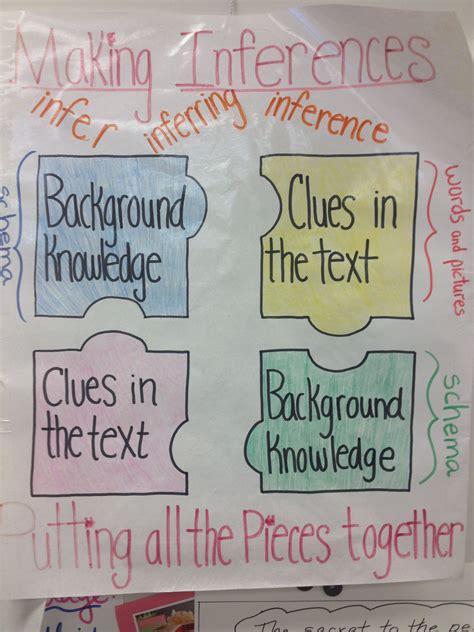 Making Inferences
infer inferring inference
schema
Background
Knowledge
Clues in
the text
words and pictures
Clues in
the text
Background
Knowledge
schema
Putting all the Pieces together
The secret to the